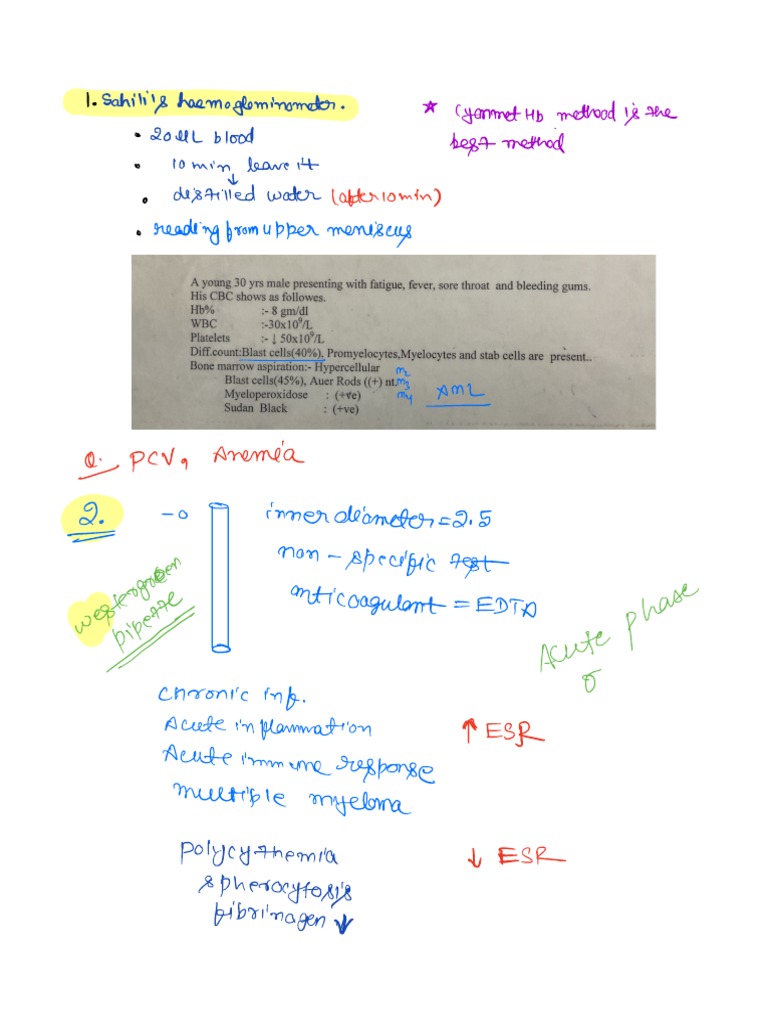 1. Sahili's haemoglominometer.
★ Cyanmet Hb method is the
best method
• 20 ML blood
• 10 min leave it
↓
• distilled water (after 10 min)
• reading from upper meniscus
A young 30 yrs male presenting with fatigue, fever, sore throat and bleeding gums.
His CBC shows as followes.
Hb% :- 8 gm/dl
WBC :-30x10⁹/L
Platelets :- ↓ 50x10⁹/L
Diff.count:Blast cells(40%), Promyelocytes,Myelocytes and stab cells are present..
Bone marrow aspiration:- Hypercellular M2
Blast cells(45%), Auer Rods ((+) nt. M3
Myeloperoxidose : (+ve) M4 AML
Sudan Black : (+ve)
Q. PCV, Anemia
2. -0 inner diameter = 2.5
non-specific test
anticoagulant = EDTA
westergreen
pipette
Acute phase
chronic inf.
Acute inflammation ↑ ESR
Acute immune response
multiple myeloma
polycythemia ↓ ESR
spherocytosis
fibrinagen ↓